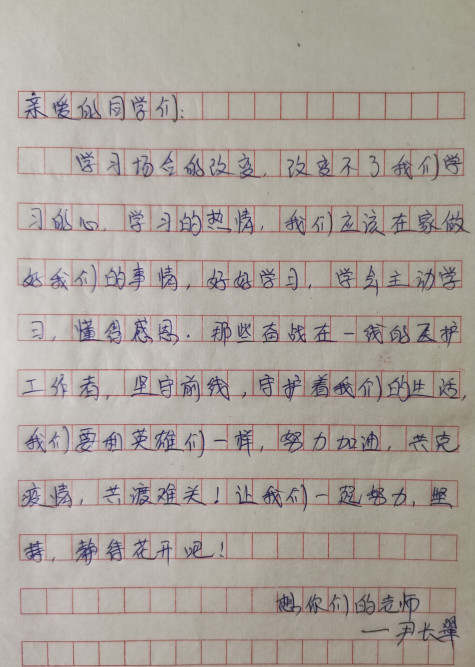 亲爱的同学们:
学习场合的改变,改变不了我们学
习的心,学习的热情,我们应该在家做
好我们的事情,好好学习,学会主动学
习,懂得感恩.那些奋战在一线的医护
工作者,坚守前线,守护着我们的生活,
我们要和英雄们一样,努力加油,共克
疫情,共渡难关!让我们一起努力,坚
持,静待花开吧!
想你们的老师
——尹长翠